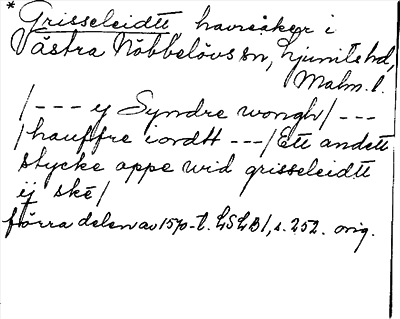 * Grisseleidtt havreåker i
Västra Nöbbelövs sn, Ljunits hd,
Malm. l.
/--- ij Syndre wongh/ ---
/hauffre iordtt ---/ Ett andett
stycke oppe wid grisseleidtt
ij ske/
förra delen av 1570-t. LSLB1, s. 252. orig.